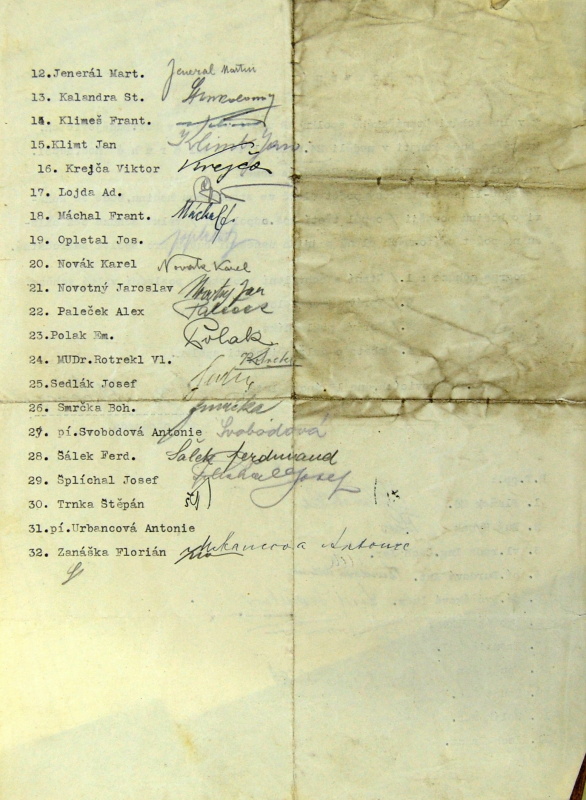 12.Jenerál Mart. Jeneral Martin
13. Kalandra St.
14. Klimeš Frant.
15.Klimt Jan Klimt Jan.
16. Krejča Viktor Krejča
17. Lojda Ad.
18. Máchal Frant. Máchal f.
19. Opletal Jos.
20. Novák Karel Novák Karel
21. Novotný Jaroslav
22. Paleček Alex
23.Polak Em. Polak
24. MUDr.Rotrekl Vl.
25.Sedlák Josef
26. Smrčka Boh. Smrčka
27. pí.Svobodová Antonie Svobodová
28. Šálek Ferd. Šálek Ferdinand
29. Šplíchal Josef Josef
30. Trnka Štěpán
31.pí.Urbancová Antonie
32. Zanáška Florián